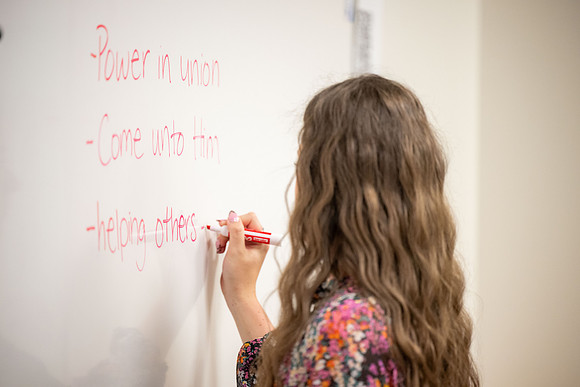 -Power in union
-Come unto Him
-helping others